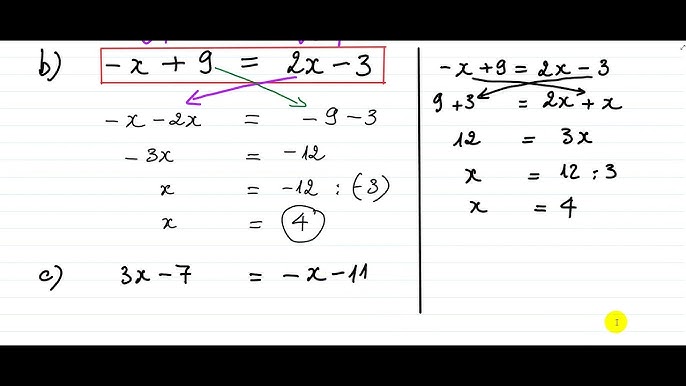 b) -x + 9 = 2x - 3
-x - 2x = -9 - 3
-3x = -12
x = -12 : (-3)
x = 4
c) 3x - 7 = -x - 11
-x + 9 = 2x - 3
9 + 3 = 2x + x
12 = 3x
x = 12 : 3
x = 4